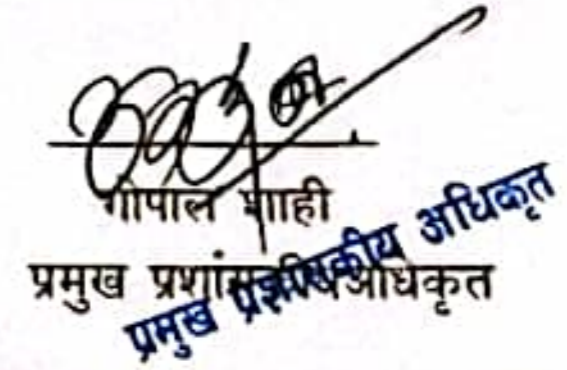 गोपाल शाही
प्रमुख प्रशासकीय अधिकृत
प्रमुख प्रशासकीय अधिकृत